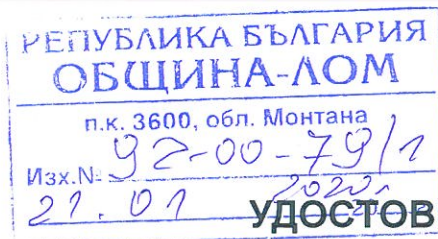 РЕПУБЛИКА БЪЛГАРИЯ
ОБЩИНА-ЛОМ
п.к. 3600, обл. Монтана
Изх.№ 92-00-79/1
21.01 2020г.
УДОСТОВ